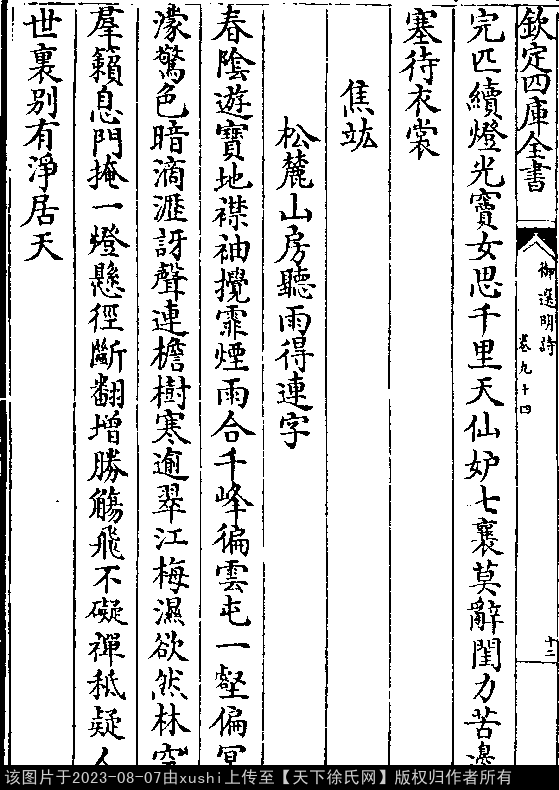 欽定四庫全書
御選明詩
卷九十四
十三
完匹續燈光寳女思千里天仙妒七襄莫辭閨力苦邊
塞待衣裳
焦竑
松麓山房聽雨得連字
春陰遊寶地襟袖攬霏煙雨合千峰徧雲屯一壑偏冥
濛驚色暗滴瀝訝聲連檐樹寒逾翠江梅濕欲然林空
羣籟息門掩一燈懸徑斷翻增勝觴飛不礙禪秪疑人
世裏別有淨居天
该图片于2023-08-07由xushi上传至【天下徐氏网】版权归作者所有